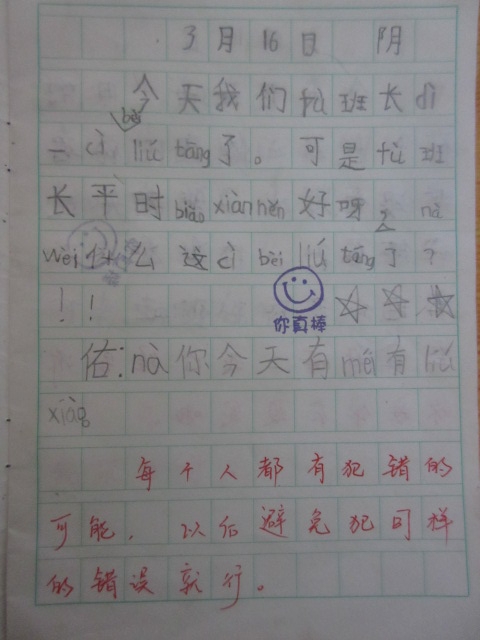 3月16日 阴
今天我们fù班长dì
一cì bèi liú táng了。可是fù班
长平时biǎo xiàn hěn好呀，nà
wèi什么这cì bèi liú táng了？
！！
你真棒
佑：nà你今天有méi有liú
xiàg
每个人都有犯错的
可能，以后避免犯同样
的错误就行。